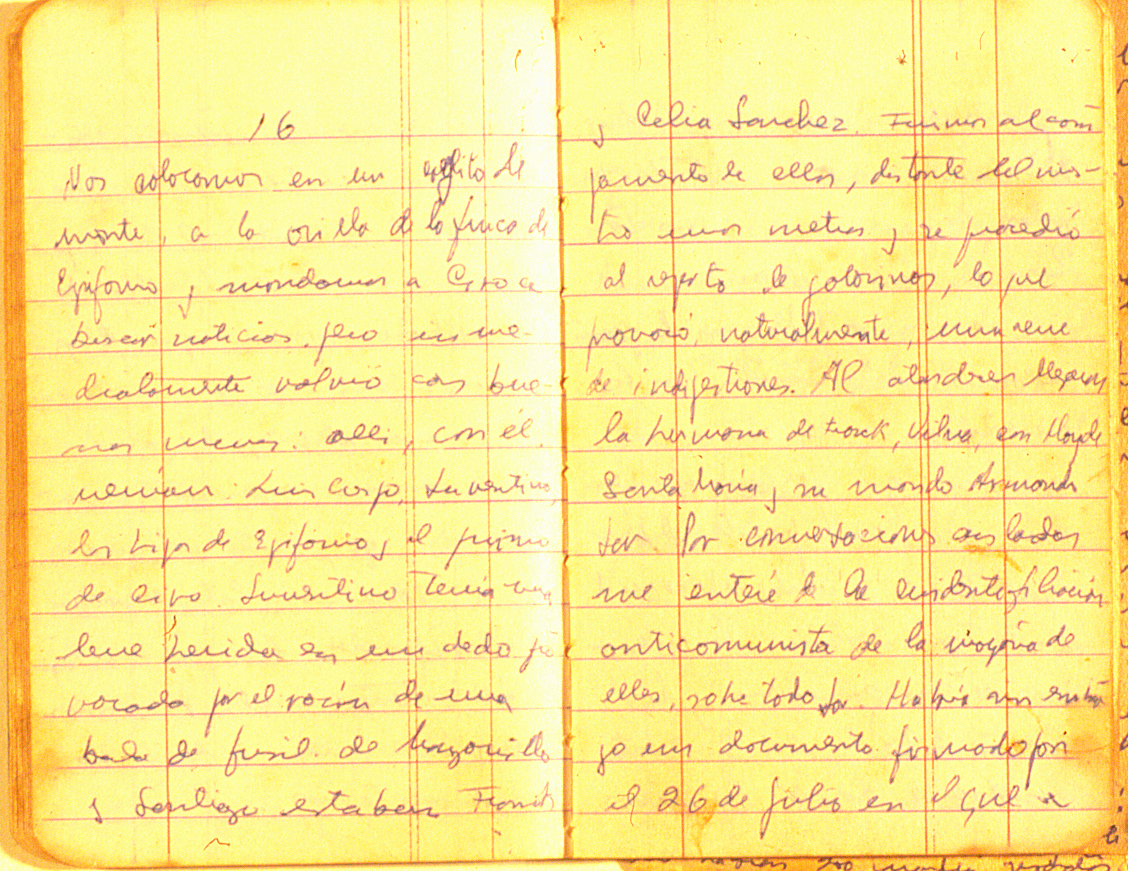 16
Nos colocamos en un cayito de
monte, a la orilla de la finca de
Epifanio y mandamos a Ciro a
buscar noticias, pero inme-
diatamente volvió con bue-
nas nuevas: allí, con él
venían: Luis Crespo, Juventino,
los hijos de Epifanio y el primo
de Ciro. Juventino tenía una
leve herida en un dedo pro
vocada por el roción de una
bala de fusil. de Manzanillo
y Santiago estaban Frank
y Celia Sanchez. Fuimos al cam
pamento de ellos, distante del nues-
tro unos metros y se procedió
al reparto de golosinas, lo que
provocó, naturalmente, una serie
de indigestiones. Al atardecer llegaron
la hermana de Frank, Vilma, con Haydé
Santa María y su marido Armando
Por conversaciones aisladas
me enteré de la evidente filiación
anticomunista de la mayoría de
ellos, sobre todo Había
un documento firmado por
el 26 de Julio en el que